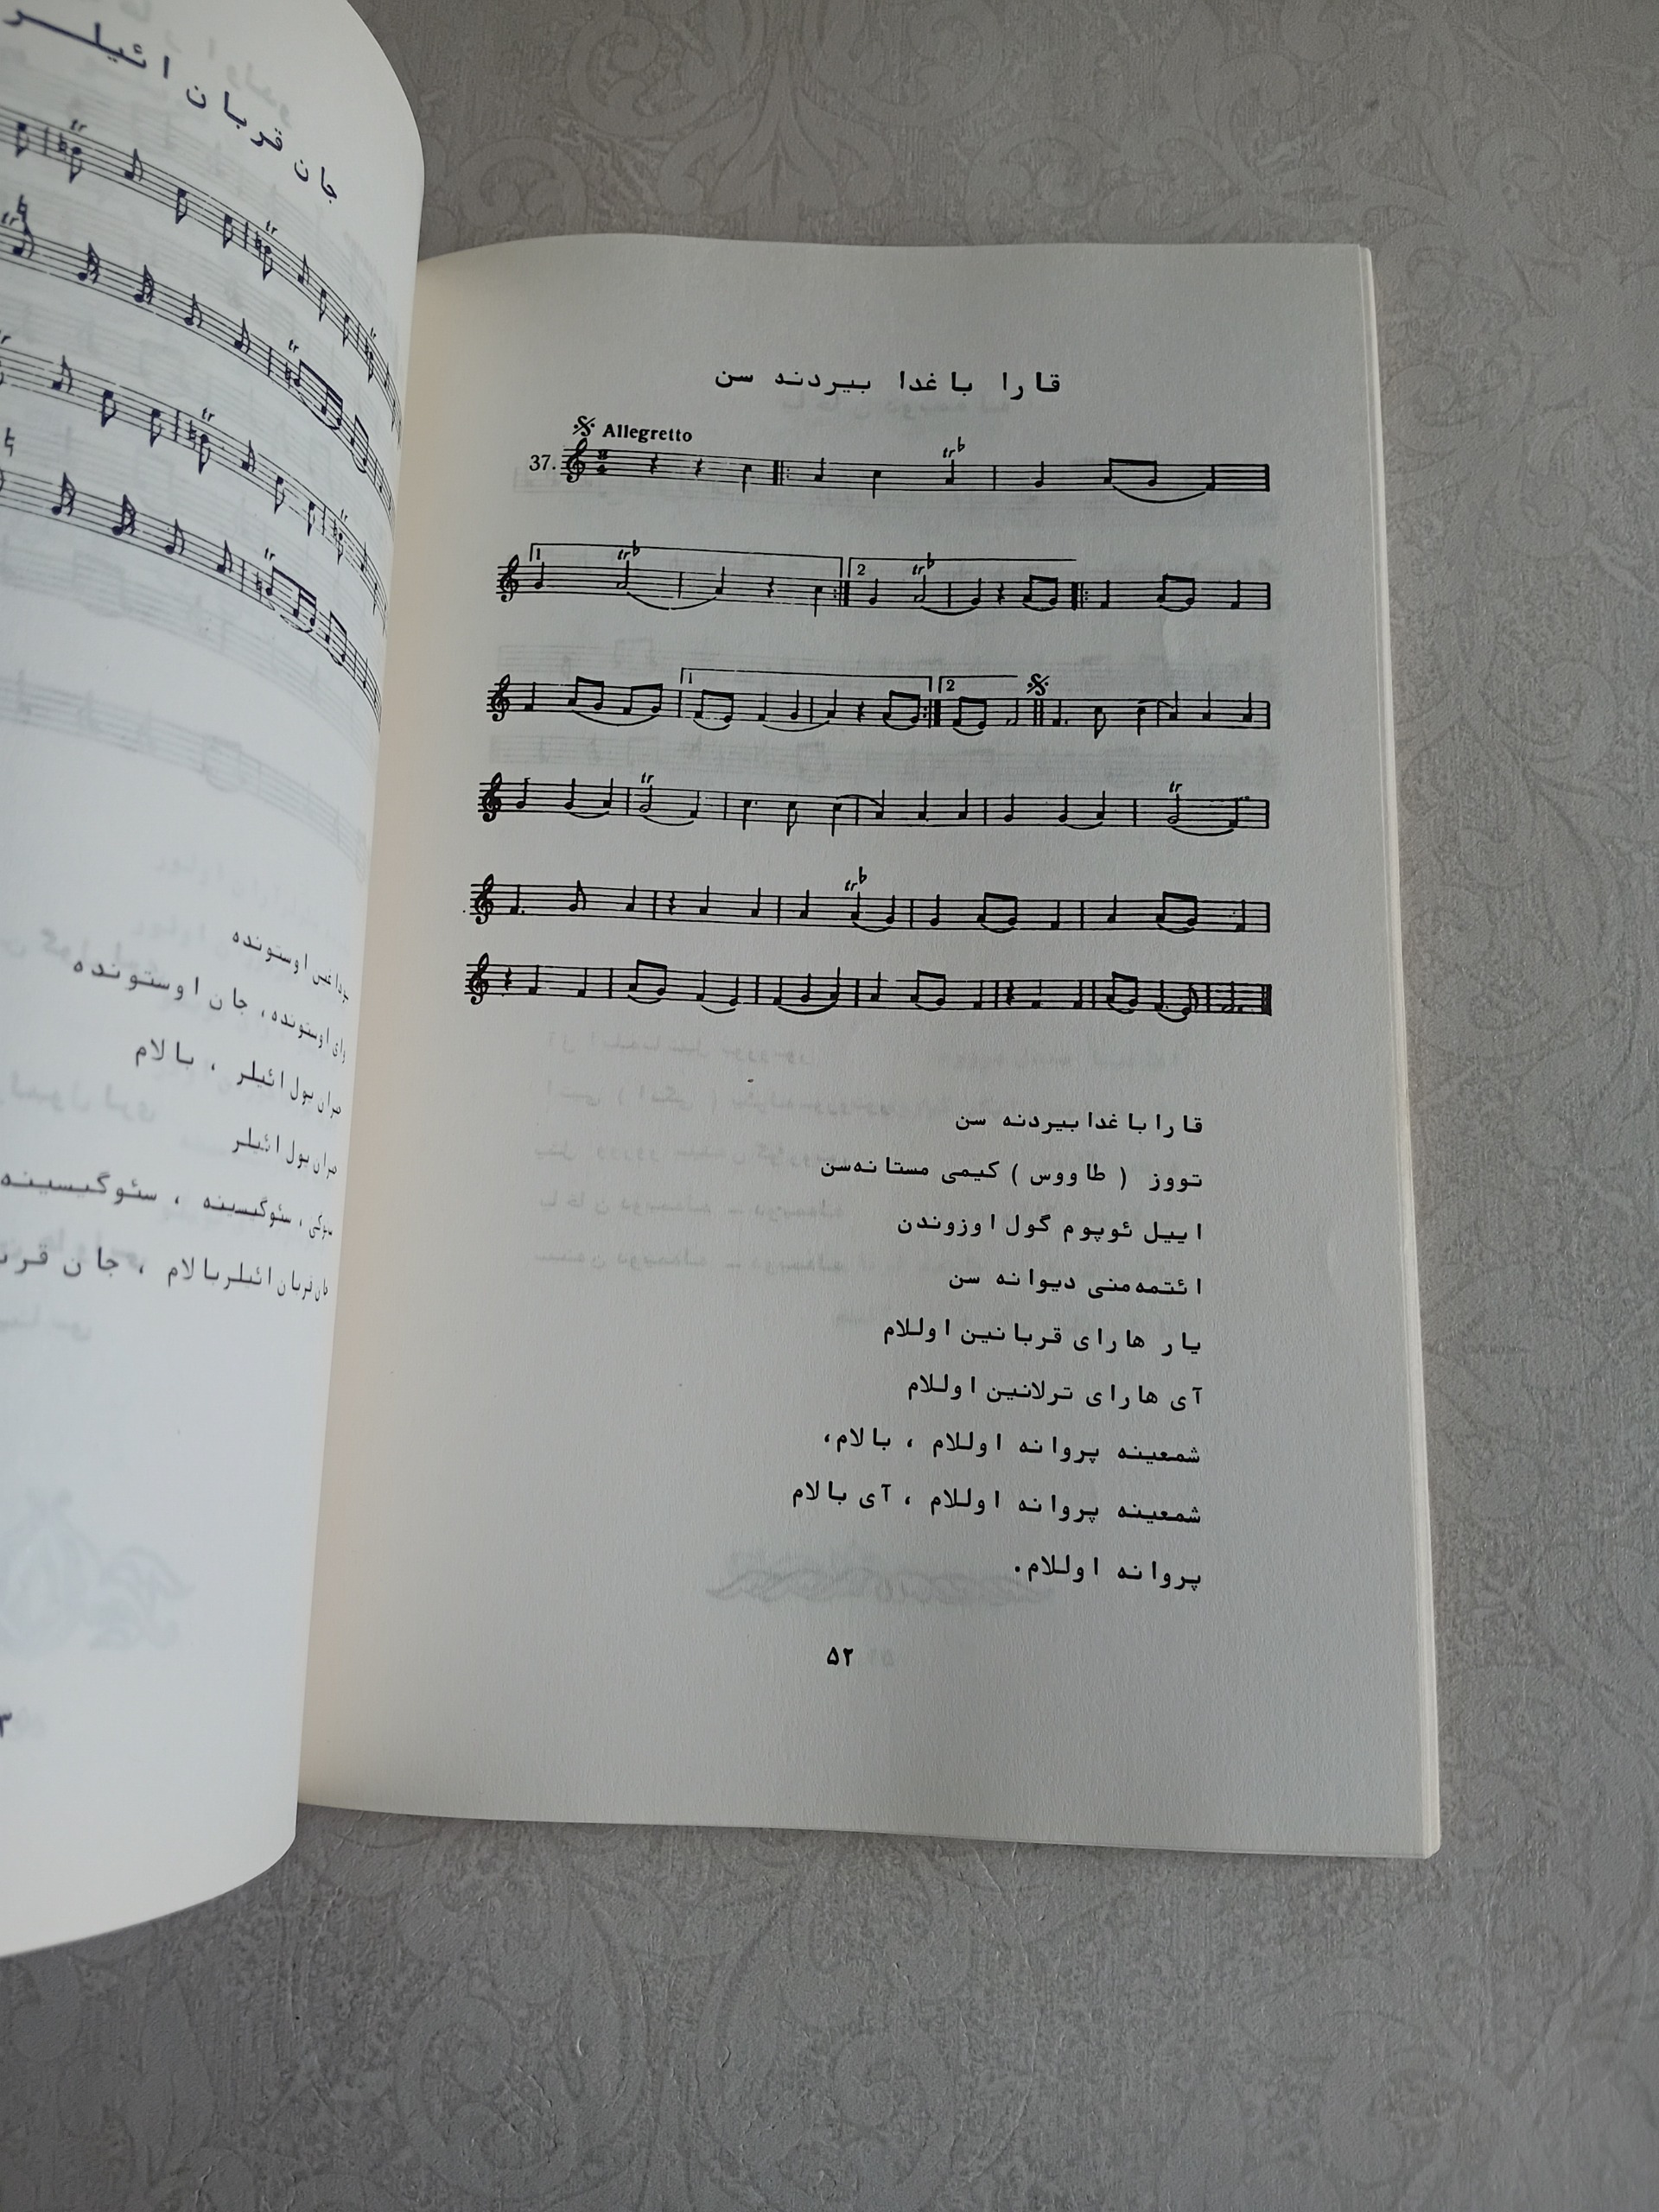 جان قربان ائیلر
قارا باغدا بیردنه سن
Allegretto
37.
1
2
1
2
قاراباغدا بیردنه سن
تووز ( طاووس ) کیمی مستانه‌سن
اییل ئوپوم گول اوزوندن
ائتمه‌منی دیوانه سن
یار هارای قربانین اوللام
آی هارای ترلانین اوللام
شمعینه پروانه اوللام ، بالام،
شمعینه پروانه اوللام ، آی بالام
پروانه اوللام.
۵۲
اوستونده
وای اوستونده، جان اوستونده
یول ائیلر ، بالام
یول ائیلر
سئوگیسینه ، سئوگیسینه
جان قربان ائیلربالام ، جان